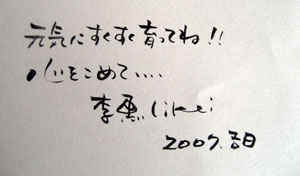 元気にすくすく育ってね!!
心をこめて....
李恵 likei
2007. 吉日